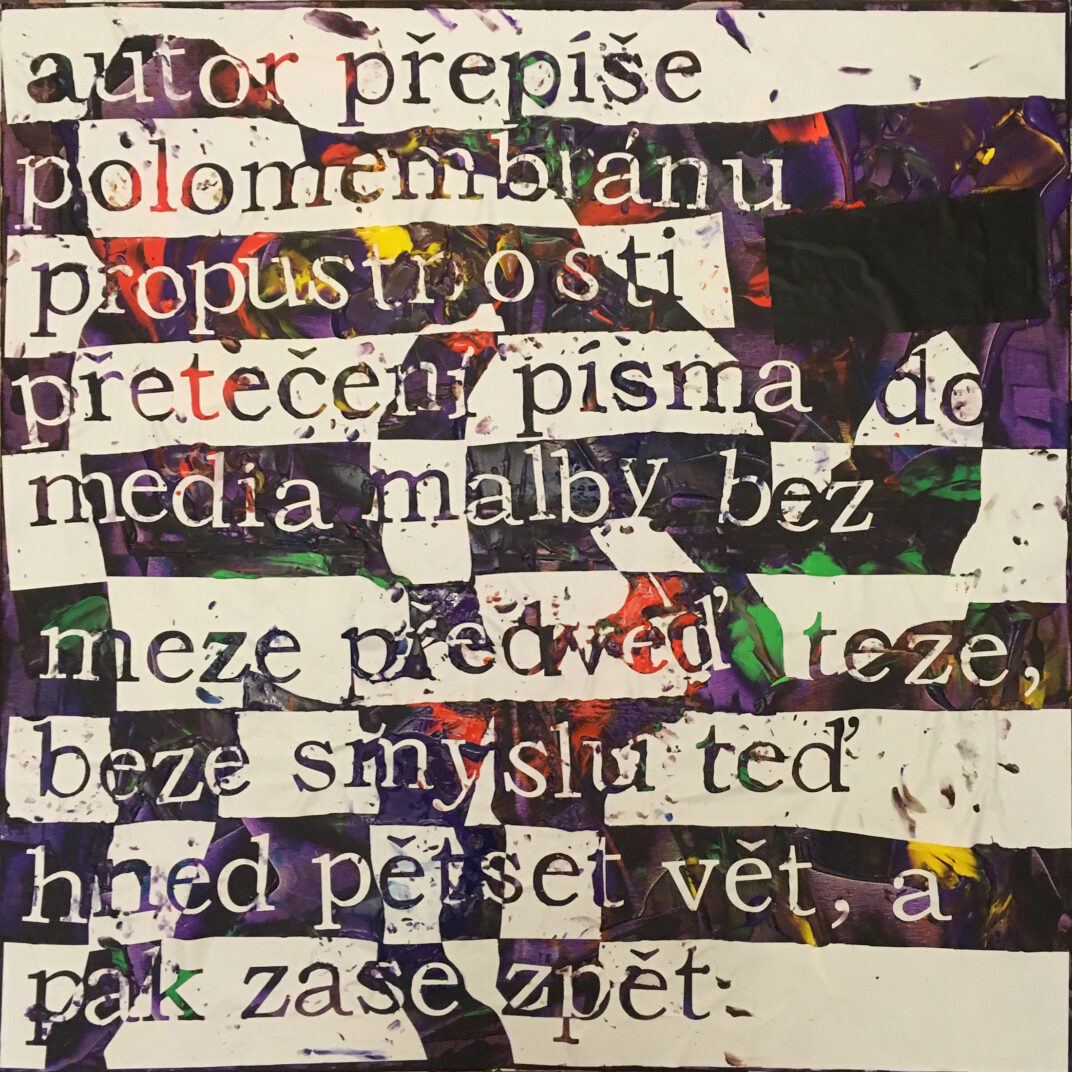 autor přepíše
polomembránu
propustnosti
přetečení písma do
media malby bez
meze předveď teze,
beze smyslu teď
hned pětset vět, a
pak zase zpět.